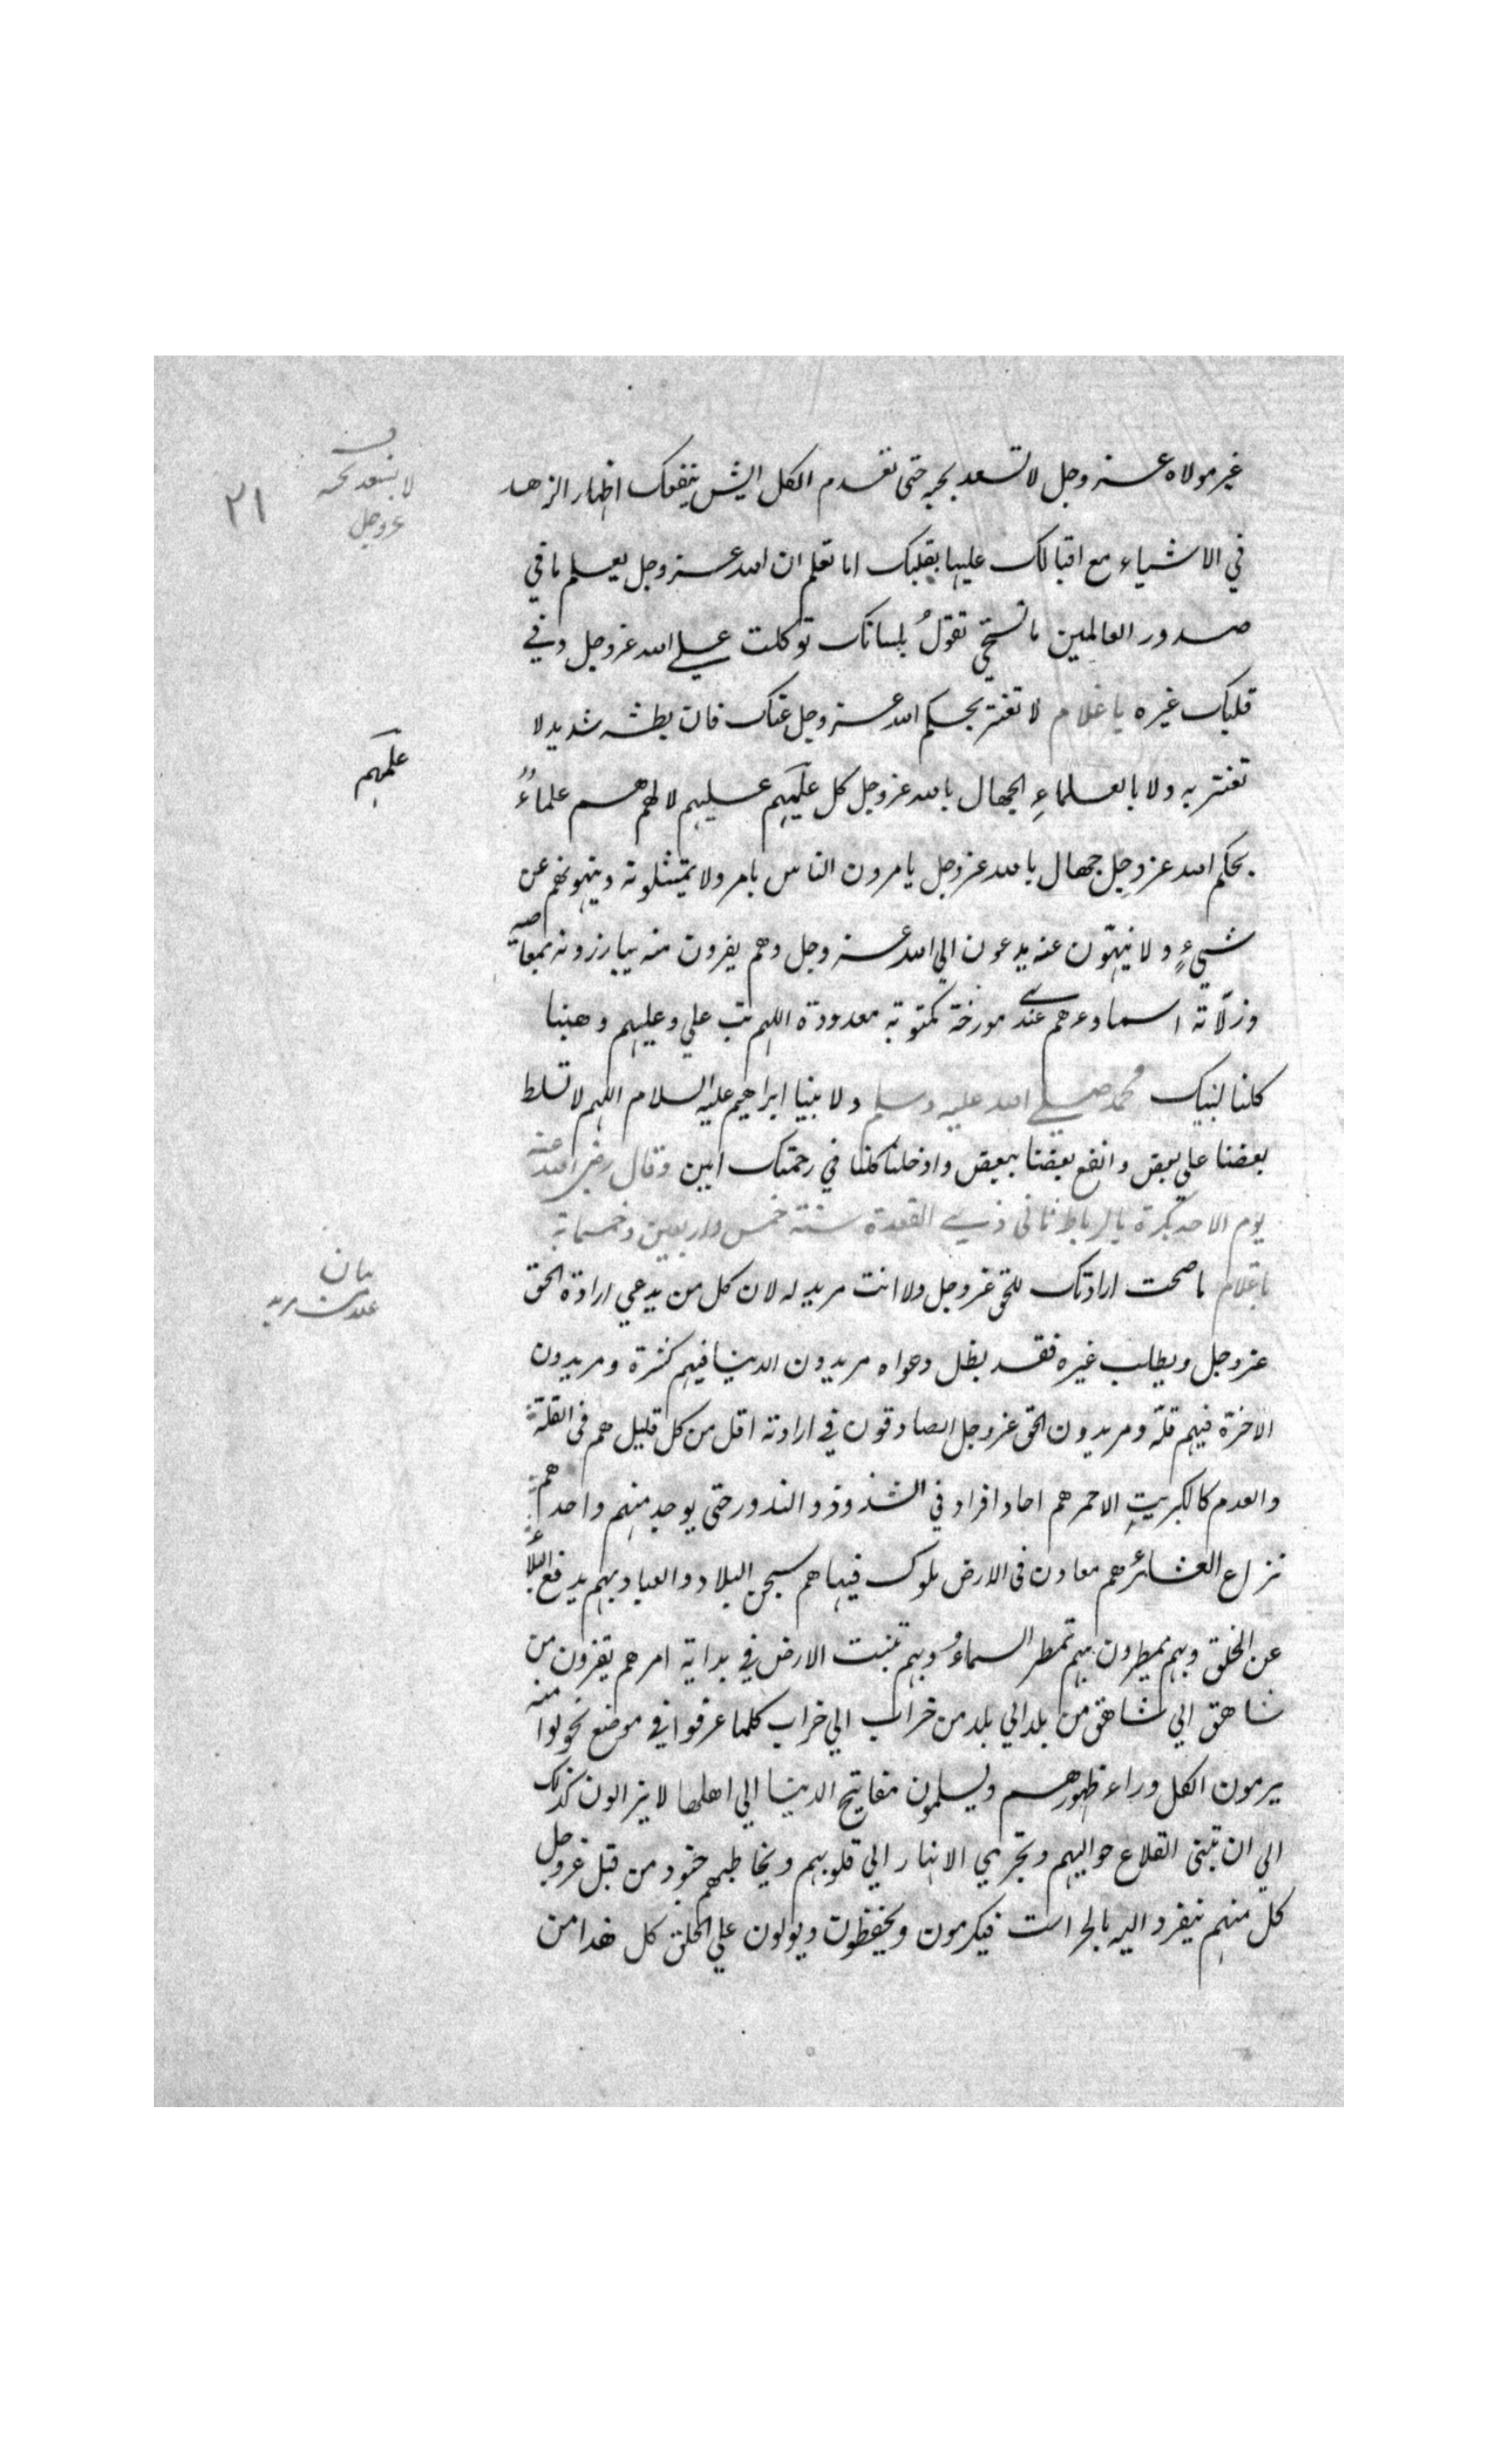 غير مولاه عز وجل لا تسعد بحبه حتى تعدم الكل ايش ينفعك اظهار الزهد
في الاشياء مع اقبالك عليها بقلبك اما تعلم ان الله عز وجل يعلم ما في
صدور العالمين ما تستحي تقول بلسانك توكلت على الله عز وجل وفي
قلبك غيره يا غلام لا تغتر بحكم الله عز وجل عنك فان بطشه شديد لا
تغتر به ولا بالعلماء الجهال بالله عز وجل كل علمهم عليهم لا لهم هم علماء
بحكم الله عز وجل جهال بالله عز وجل يامرون الناس بامر ولا يمتثلونه وينهونهم عن
شيء ولا ينتهون عنه يدعون الي الله عز وجل وهم يفرون منه يبارزونه بمعاصيه
وزلاته اسماوءهم عندي مورخة مكتوبة معدودة اللهم تب علي وعليهم وهبنا
كلنا لنبيك محمد صلي الله عليه وسلم ولابينا ابراهيم عليه السلام اللهم لا تسلط
بعضنا على بعض وانفع بعضنا ببعض وادخلنا كلنا في رحمتك امين وقال رضي الله عنه
يوم الاحد بكرة بالرباط ثاني ذي القعدة سنة خمس واربعين وخمسماية
يا غلام ما صحت ارادتك للحق عز وجل ولا انت مريد له لان كل من يدعي ارادة الحق
عز وجل ويطلب غيره فقد بطل دعواه مريدون الدنيا فيهم كثرة ومريدون
الاخرة فيهم قلة ومريدون الحق عز وجل الصادقون في ارادته اقل من كل قليل هم في القلة
والعدم كالكبريت الاحمر هم احاد افراد في الشذوذ والندور حتى يوجد منهم واحد هم
نزاع العشائر هم معادن في الارض ملوك فيها هم سجن البلاد والعباد بهم يدفع البلاء
عن الخلق وبهم يمطرون بهم تمطر السماء وبهم تنبت الارض في بداية امرهم يفرون من
شاهق الي شاهق من بلد الي بلد من خراب الي خراب كلما عرفوا في موضع تحولوا منه
يرمون الكل وراء ظهورهم ويسلمون مفاتيح الدنيا الي اهلها لا يزالون كذلك
الي ان تبنى القلاع حواليهم وتجري الانهار الي قلوبهم ويخاطبهم جنود من قبل عز وجل
كل منهم ينفرد اليه بالحراست فيكرمون ويحفظون ويولون علي الخلق كل هذا من
لا يسعد بحبه
عز وجل
٢١
علمهم
بيان